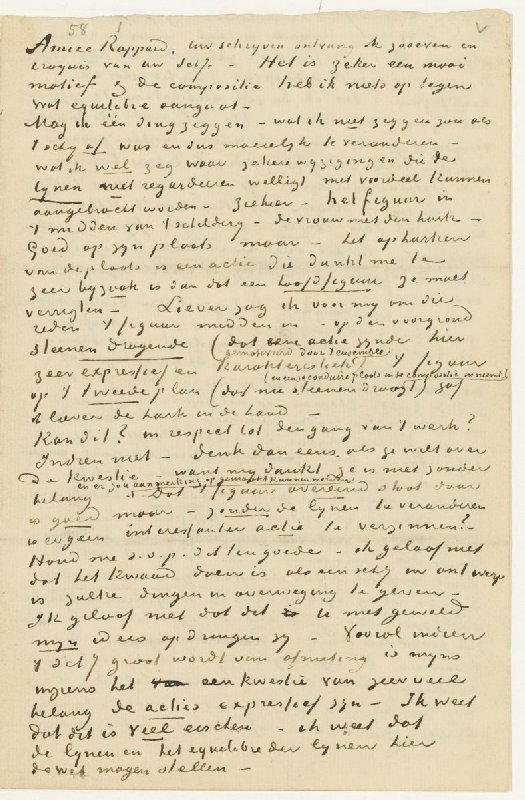 58 1 v
Amice Rappard, uw schrijven ontvang ik zooeven en
croquis van uw schij. - Het is zeker een mooi
motief & de compositie heb ik niets op tegen
wat equilibre aangaat -
Mag ik één ding zeggen - wat ik niet zeggen zou als
't schij af was en dus moeielijk te veranderen -
wat ik wel zeg waar zekere wijzigingen die de
lijnen niet regarderen welligt met voordeel kunnen
aangebracht worden - Ziehier - het figuur in
't midden van 't schilderij - de vrouw met den hark -
Goed op zijn plaats maar - het opharken
van de plaats is een actie die dunkt me te
zeer bijzaak is dan dat een hoofdfiguur ze moet
verrigten - Liever zag ik voor mij om die
reden 't figuur midden in - op den voorgrond
steenen dragende (dat eene actie zijnde hier
gemotiveerd door 't ensemble
zeer expressief en karakteristiek) 't figuur
(en een secondaire plaats in de compositie innemend)
op 't tweede plan (dat nu steenen draagt) gaf
ik liever de hark in de hand -
Kan dit? in respect tot den gang van 't werk?
Indien niet - denk dan eens als ge wilt over
De kwestie want mij dunkt ze is niet zonder
en er zou aanmerking op gemaakt kunnen worden
belang - Dat figuur overeind staat daar
is goed maar - zonder de lijnen te veranderen
is er geen interessanter actie te verzinnen? -
Houd me s.v.p. dit ten goede - ik geloof niet
dat het kwaad doen is als een schij in ontwerp
is zulke dingen in overweging te geven -
Ik geloof niet dat dit is te met geweld
mijn idees opdringen zij - Vooral indien
't schij groot wordt van afmeting is mijns
inziens het van een kwestie van zeer veel
belang de acties expressief zijn - Ik weet
dat dit is veel eischen - ik weet dat
de lijnen en het equilibre der lijnen hier
de wet mogen stellen -